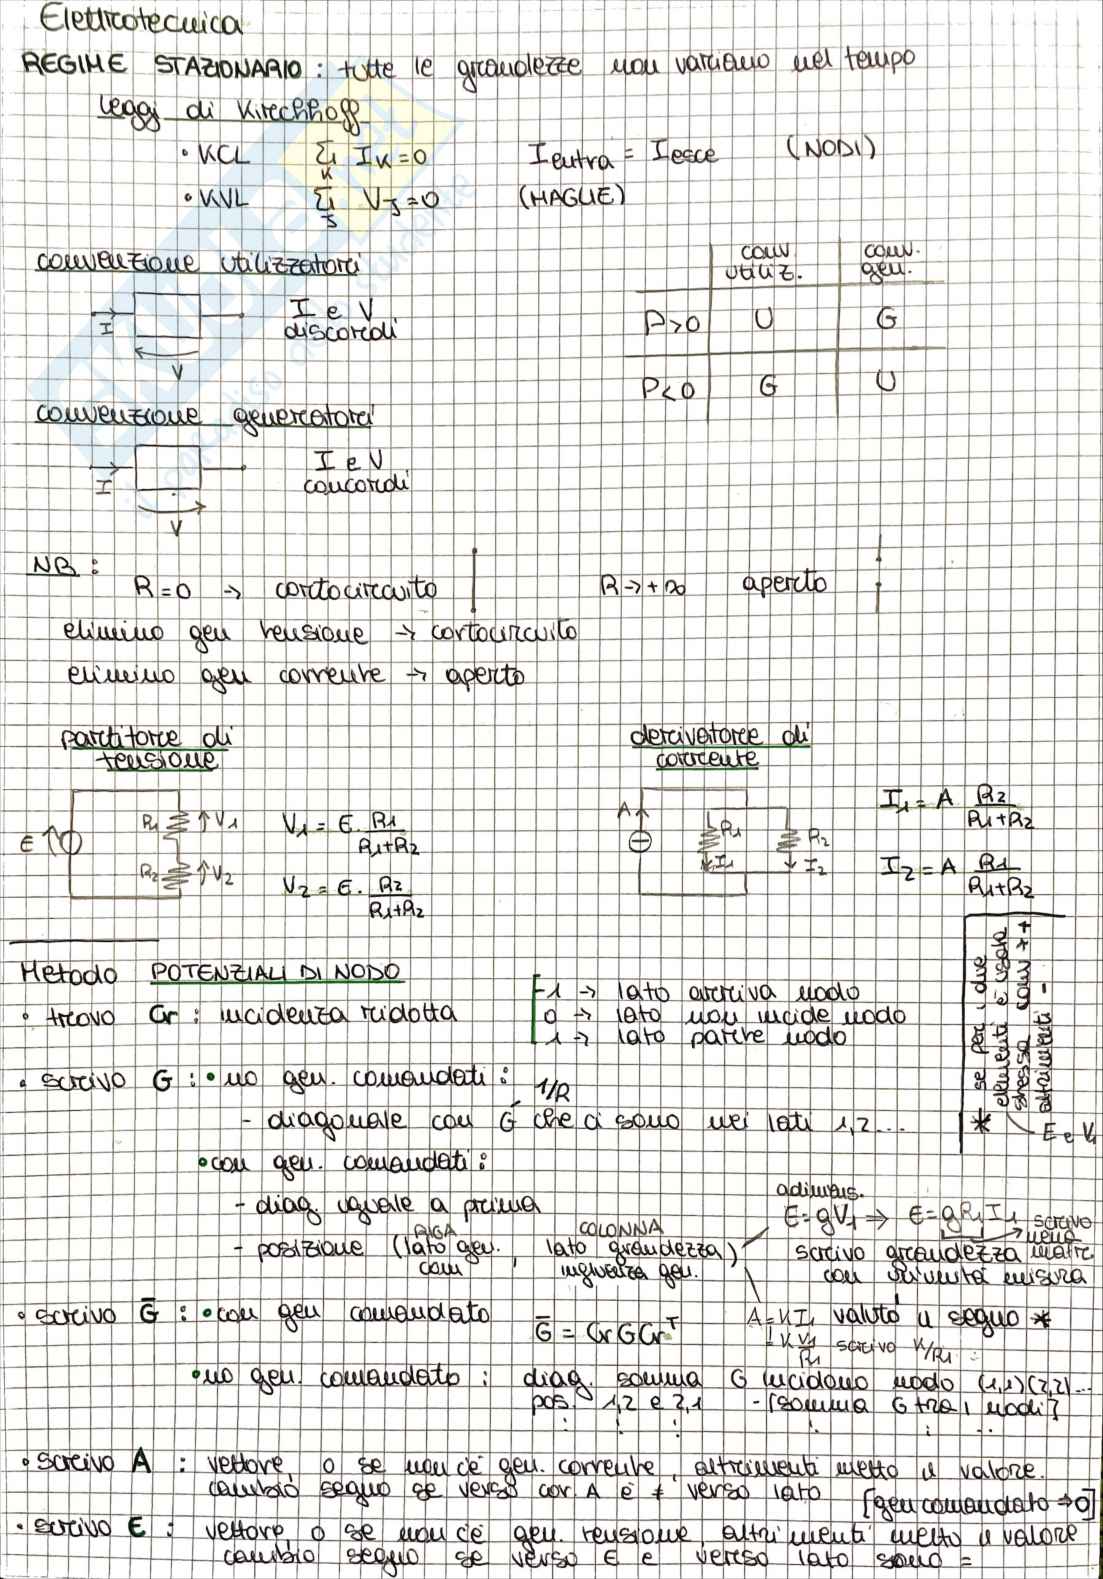 Elettrotecnica
REGIME STAZIONARIO : tutte le grandezze non variano nel tempo
Leggi di Kirchhoff
• KCL Σ I_K = 0 Ientra = Iesce (NODI)
K
• KVL Σ V_J = 0 (MAGLIE)
J
convenzione utilizzatori
I
V
I e V
discordi
conv. utiliz. conv. gen.
P>0 U G
P<0 G U
convenzione generatori
I
V
I e V
concordi
NB :
R=0 → cortocircuito R→+∞ aperto
elimino gen tensione → cortocircuito
elimino gen corrente → aperto
partitore di
tensione
E R1 ↑V1 R2 ↑V2
V1 = E · R1/(R1+R2)
V2 = E · R2/(R1+R2)
derivatore di
corrente
A R1 I1 R2 I2
I1 = A R2/(R1+R2)
I2 = A R1/(R1+R2)
Metodo POTENZIALI DI NODO
• trovo Cr : incidenza ridotta
-1 → lato arriva nodo
0 → lato non incide nodo
1 → lato parte nodo
* se per i due
elementi è usata
stessa conv ++
altrimenti -
E e V1
• scrivo G : • no gen. comandati :
1/R
- diagonale con G che ci sono nei lati 1,2...
• con gen. comandati :
- diag. uguale a prima
- posizione (lato gen. com , lato grandezza influenza gen.)
RIGA COLONNA
adimens.
E = gV1 → E = gR1I1 scrivo
nella
scrivo grandezza matr.
con unità misura
• scrivo G̅ : • con gen comandato
G̅ = CrGCrᵀ
A=KI1 valuto il segno *
K V1/R1 scrivo K/R1
• no gen. comandato : diag. somma G incidono nodo (1,1)(2,2)...
pos. 1,2 e 2,1 -[somma G tra i nodi]
• scrivo A : vettore, 0 se non c'è gen. corrente, altrimenti metto il valore.
cambio segno se verso cor. A è ≠ verso lato [gen comandato ⇒ 0]
• scrivo E : vettore, 0 se non c'è gen. tensione, altrimenti metto il valore
cambio segno se verso E e verso lato sono =